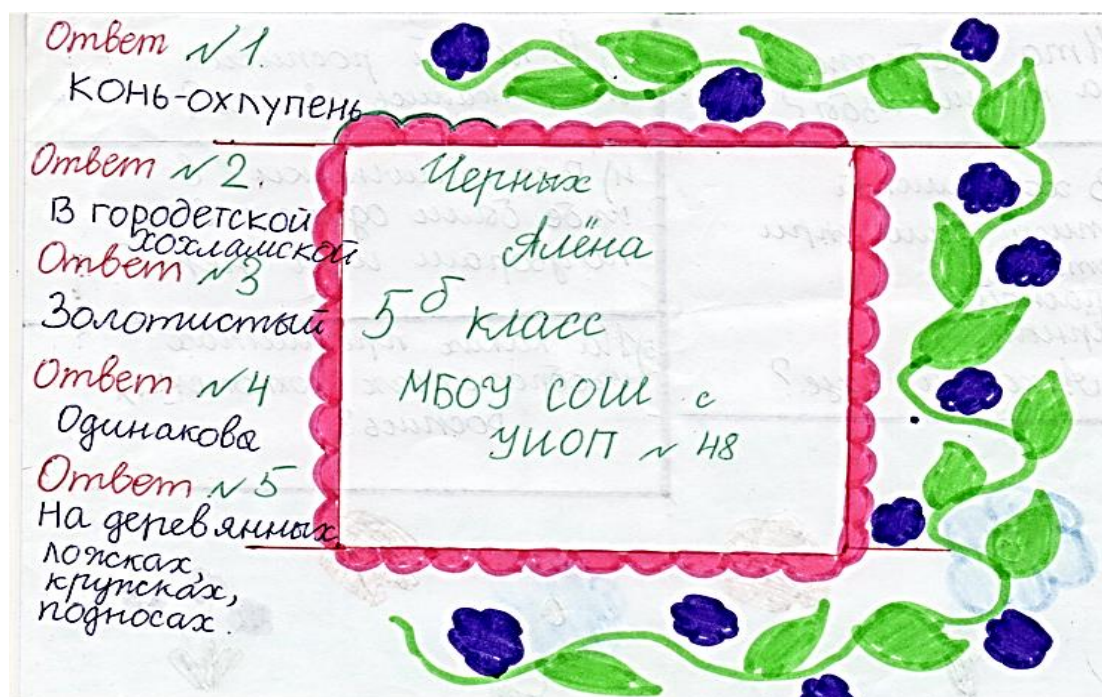 Ответ №1.
КОНЬ-ОХЛУПЕНЬ
Ответ №2.
В городетской
хохламской
Ответ №3
Золотистый
Ответ №4
Одинакова
Ответ №5
На деревянных
ложках,
кружках,
подносах.
Черных
Алёна
5 б класс
МБОУ СОШ с
УИОП №48